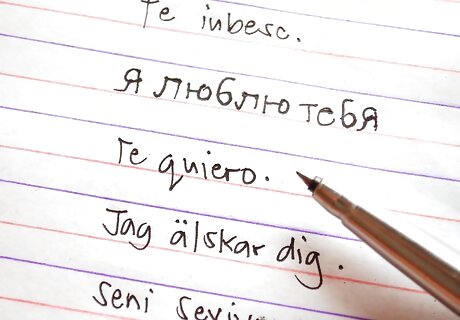 Te iubesc.
Я люблю тебя
Te quiero.
Jag älskar dig.
seni